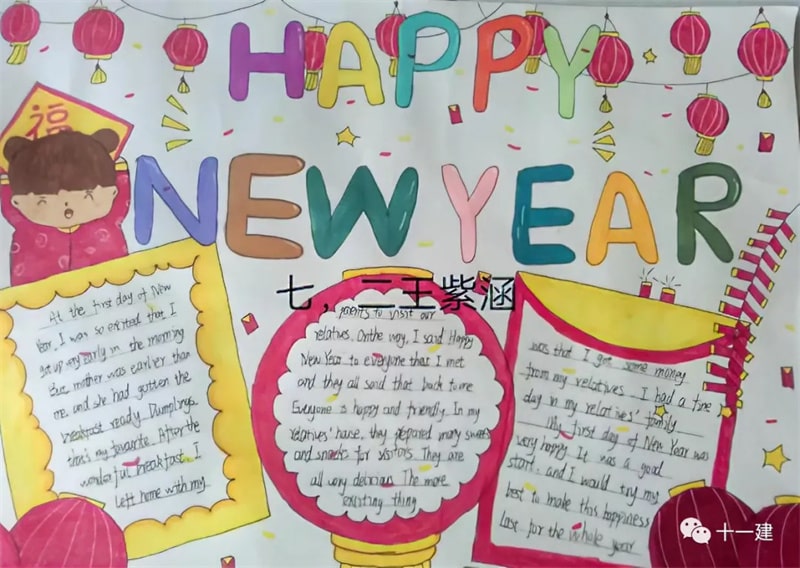 HAPPY
福
NEW YEAR
七,二王紫涵
At the first day of New
Year, I was so excited that I
got up very early in the morning
But mother was earlier than
me. and she had gotten the
breakfast ready. Dumplings
that's my favourite. After the
wonderful breakfast. I
left home with my
parents to visit our
relatives. On the way, I said Happy
New Year to everyone that I met
and they all said that back to me
Everyone is happy and friendly. In my
relatives' house, they prepared many sweets
and snacks for visitors. They are
all very delicious The more
exciting thing
was that I got some money
from my relatives. I had a fine
day in my relatives' family
My first day of New Year was
very happy. It was a good
start, and I would try my
best to make this happiness
last for the whole year
十一建